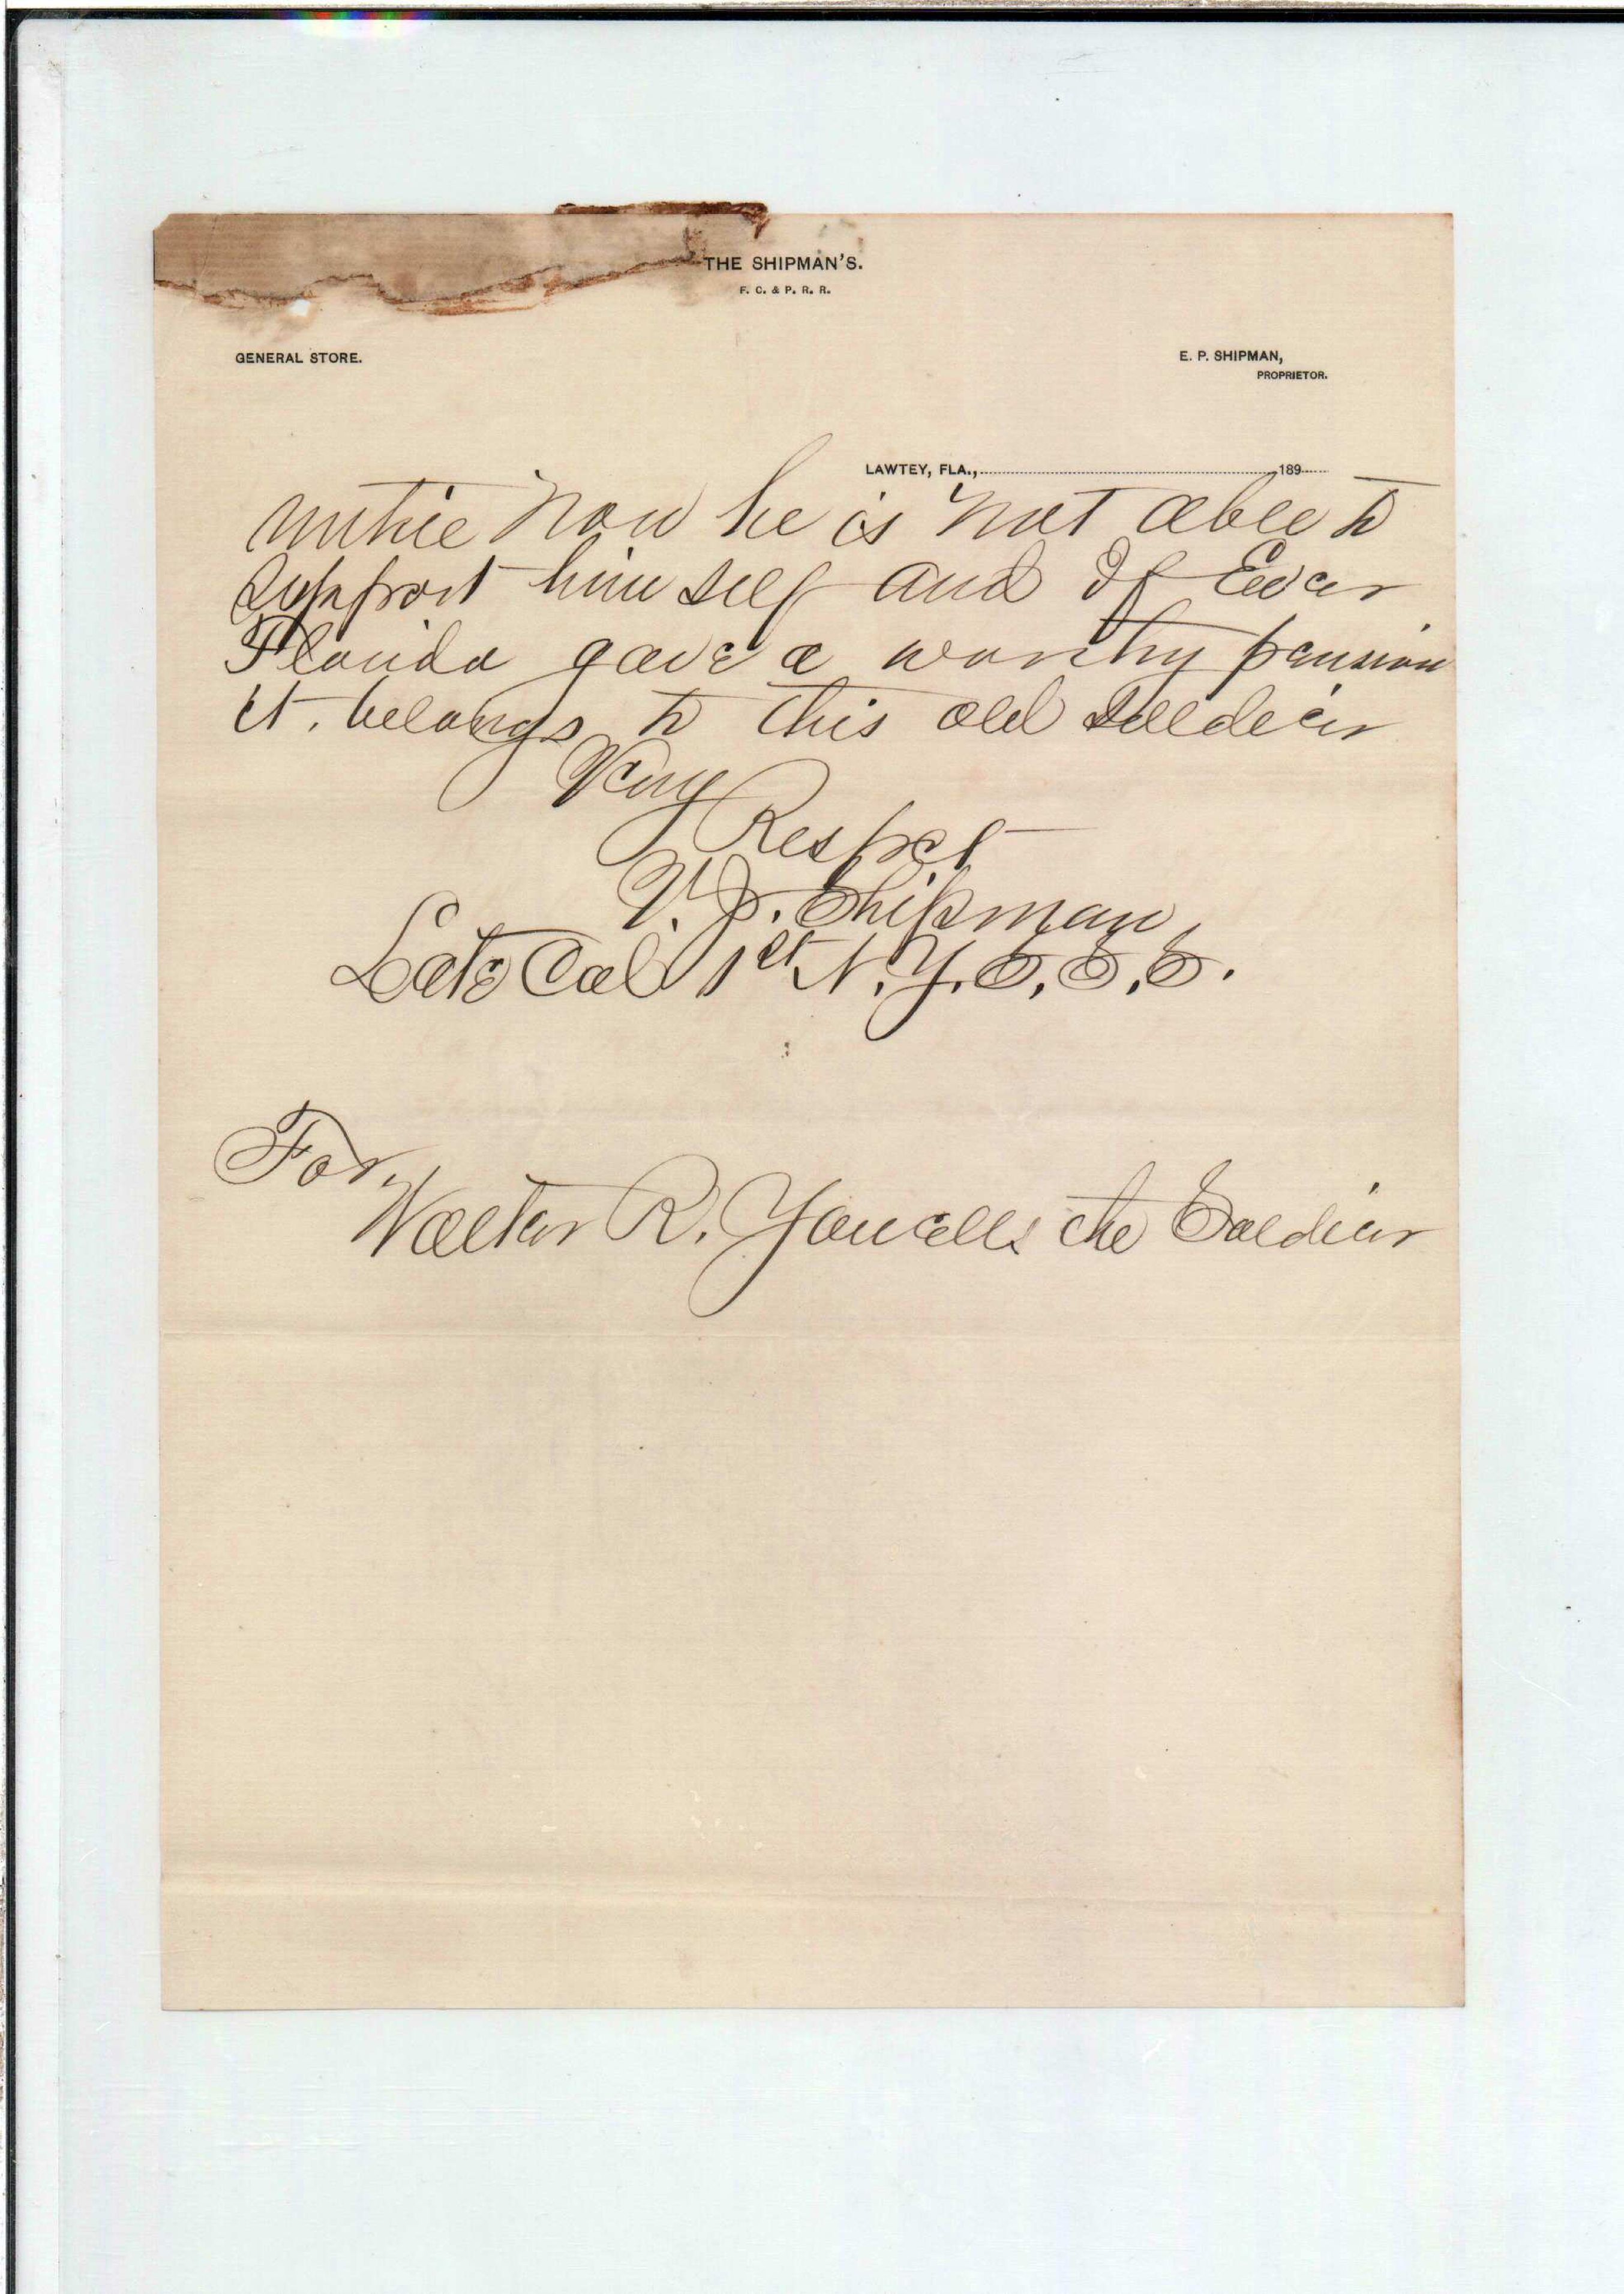 THE SHIPMAN'S.
F. C. & P. R. R.
GENERAL STORE.
E. P. SHIPMAN,
PROPRIETOR.
LAWTEY, FLA., 189
untile now he is not able to
support him self and If Ever
Florida gave a worthy pension
it. belongs to this old soldeir
Very
Respect
V. J. Shipman
Late Col 1st N. Y. S. S. S.
For,
Walter R. Yowells the Soldier